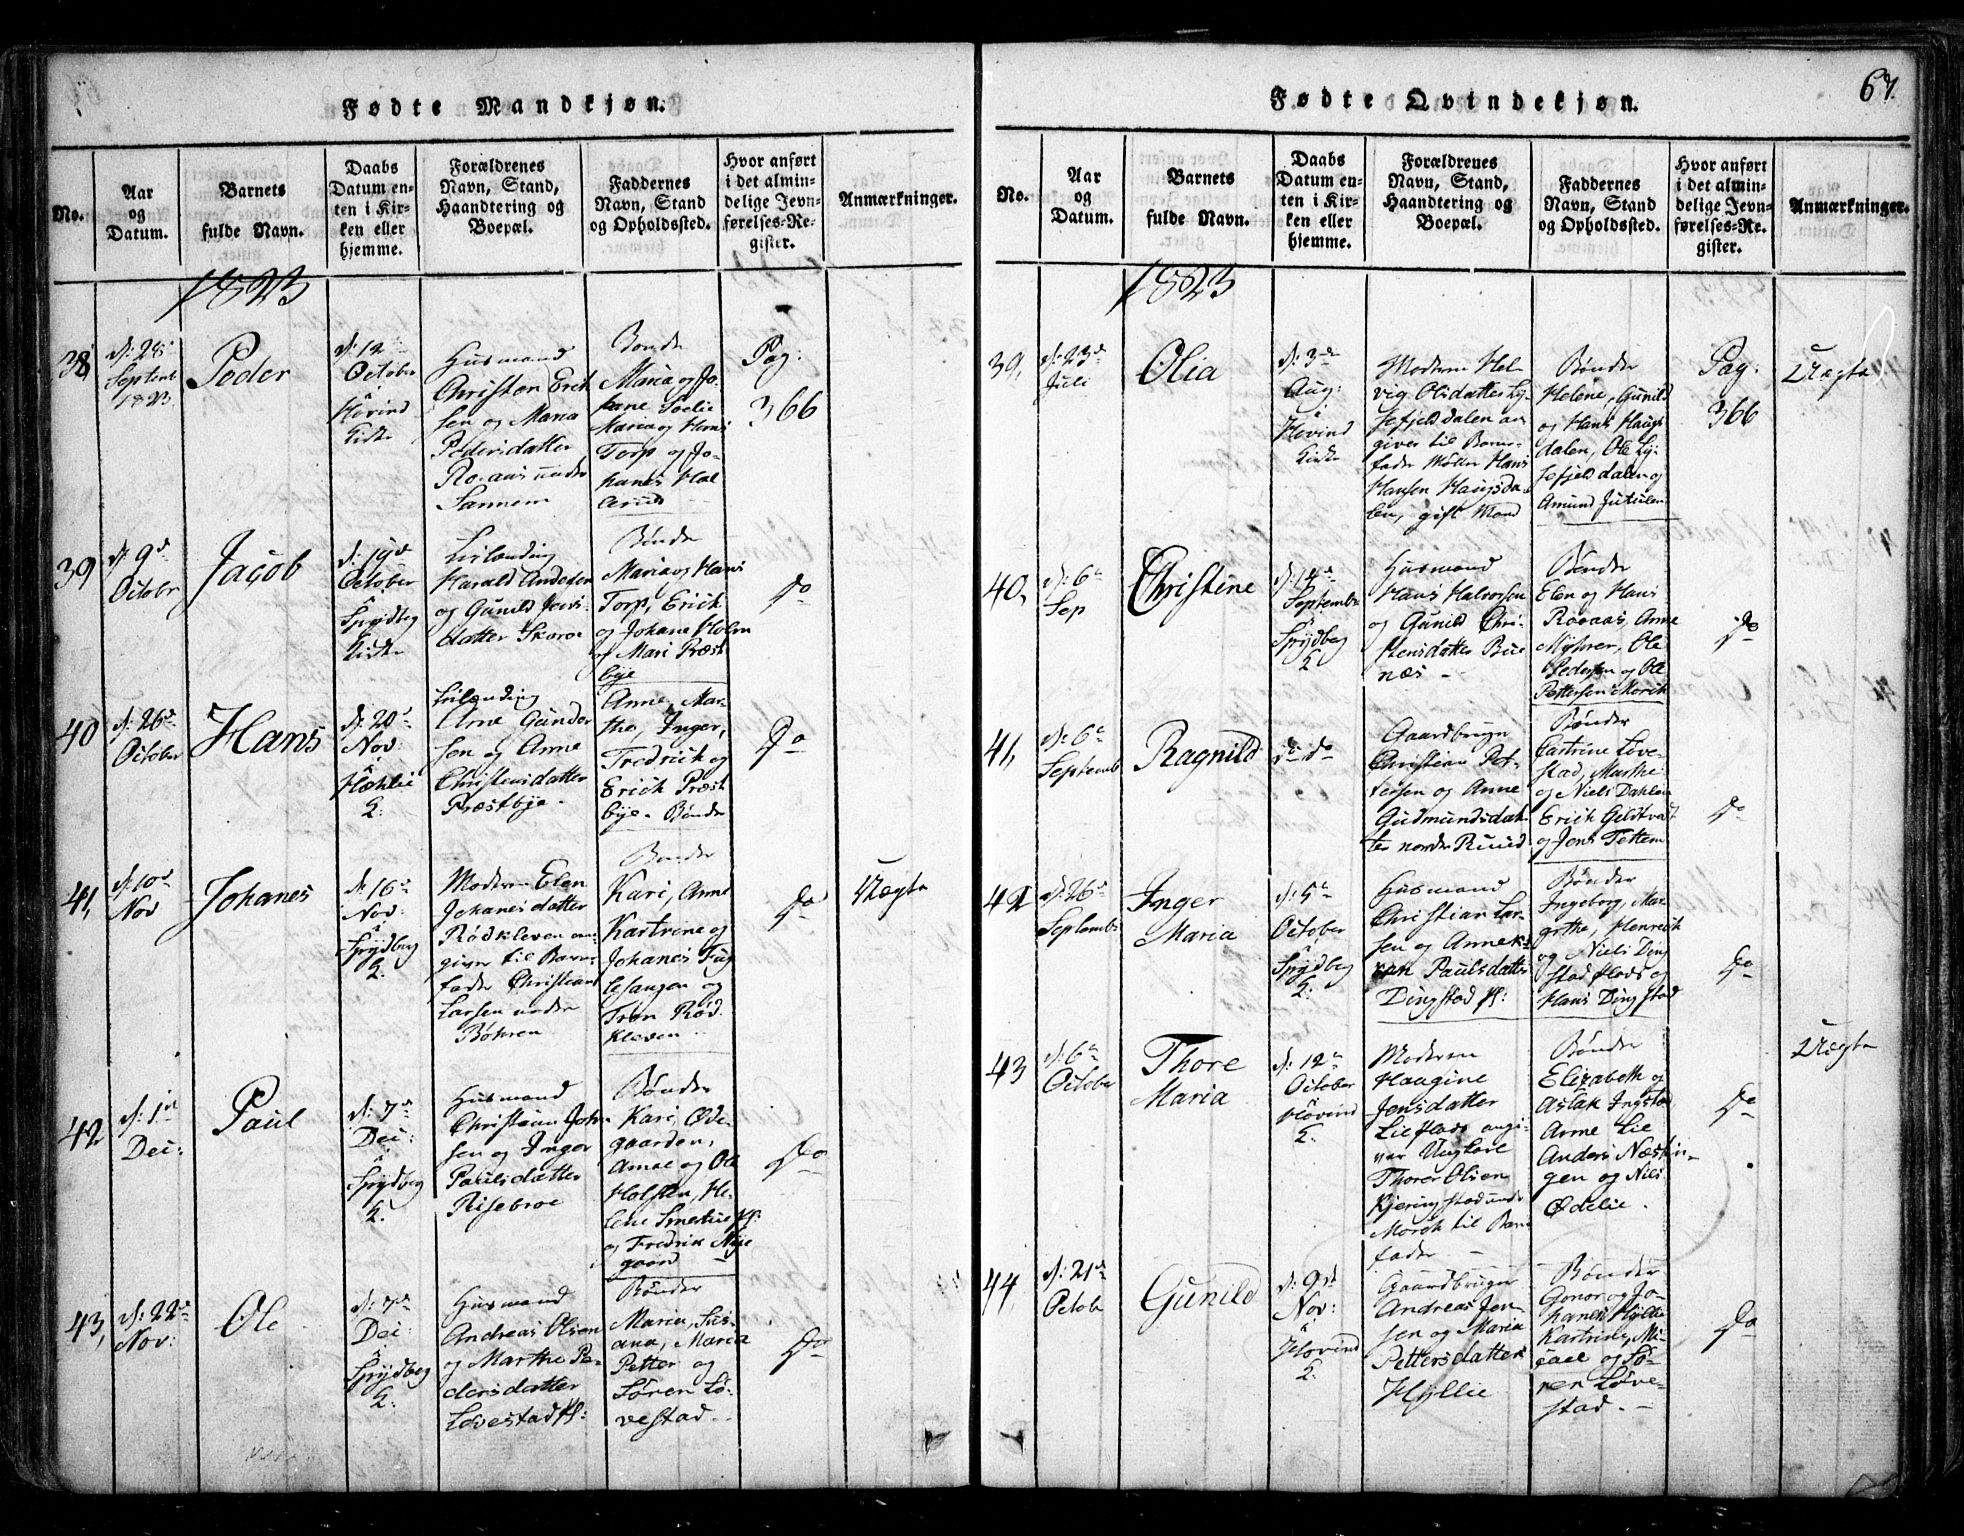 67.
Fødte Mandkjøn.
No.
Aar
og
Datum.
Barnets
fulde Navn.
Daabs
Datum en-
ten i Kir-
ken eller
hjemme.
Forældrenes
Navn, Stand,
Haandtering og
Boepæl.
Faddernes
Navn, Stand
og Opholdssted.
Hvor anført
i det almin-
delige Jevn-
førelses-Re-
gister.
Anmærkninger.
1823
38
d: 28
Septent
1823
Peder
d: 12
October
i
Høvind
Kirke
Husmand
Christen Erik
sen og Maria
Pedersdatter
Roaas under
Sannem
Bønder
Maria og Jo-
hane Soelie
Maria og Hans
Torp og Jo-
hanes Hol
Pag:
366
39
d: 9d
Octobr
Jacob
d: 19d
October
i
Spydbeg
Kirke
Harald Andersen
og Gunild Jens
datter Skoroe
Bønder
Maria og Hans
Torp, Erick
og Johane Holm
og Mari Præst
bye
do
40
d: 26d
October
Hans
d: 20
Nov:
i
Hæhlie
K:
Arne Gunder
sen og Anne
Christensdatter
Præstbye.
Anne, Mar-
the, Inger,
Fredrick og
Erick Præst
bye. Bønder
do
41,
d: 10d
Nov
Johanes
d: 16d
Nov:
i
Spydbeg
K:
Moderen Elen
Johanesdatter
Rødkleven an-
giver til Barn-
fader Christian
Larsen under
Bøhren
Bønder
Kari, Anne
Kartrine og
Johanes Fug
lesangen og
Tron Rød
kleven
do
Uægte
42
d: 1d
Dec:
Paul
d: 7d
Dec:
i
Spydbeg
K:
Husmand
Christian Joh-
sen og Inger
Paulsdatter
Risebroe
Bønder
Kari, Øde
gaarden,
og Ole
Holsten, He-
lene
og Fredrik Nye
gaard
do
43,
d: 22d
Nov:
Ole
d: 7d
Dec:
i
Spydbeg
K:
Husmand
Andreas Olsen
og Marthe Pe-
dersdatter
Løvestad Pl:
Bønder
Maria, Sus
ana, Maria
Petter og
Søren Lø-
vestad.
do
Fødte Qvindekjøn.
No.
Aar
og
Datum.
Barnets
fulde Navn.
Daabs
Datum en-
ten i Kir-
ken eller
hjemme.
Forældrenes
Navn, Stand,
Haandtering og
Boepæl.
Faddernes
Navn, Stand
og Opholdssted.
Hvor anført
i det almin-
delige Jevn-
førelses-Re-
gister.
Anmærkninger.
1823
39,
d: 23d
Juli
Olia
d: 3d
Aug:
i
Hovind
Kirke
Moderen Hel-
vig Olsdatter Ly-
sefjeld dalen an
giver til Barne-
fader Møller Hans
Hansen Haugsda-
len, gift Mand
Bønder
Helene, Gunild
og Hans Haugs
dalen, Ole Ly-
sefjeld dalen og
Amund Jutulen
Pag:
366
Uægte
40,
d: 6t
Sep
Christine
d: 14d
Septembr
i
Spydbeg
K
Husmand
Hans Halvorsen
og Gunild Chri-
stensdatter Bue-
næs
Bønder
Elen og Hans
Roaas, Anne
Myhrer, Ole
Pedersen og Ole
Pettersen Morck
do
41,
d: 6t
Septemb
Ragnild
do do
Gaardbruger
Christian Pet-
tersen og Anne
Gudmundsdat-
ter nordre Ruud
Bønder
Cartrine Løve-
stad, Marthe
og Niels Dahlen
Erich Geldtvedt
og Jens Tettem
do
42
d: 26d
Septembr
Inger
Maria
d: 5t
October
i
Spydbeg
K:
Husmand
Christian Lar-
sen og Anne
Paulsdatter
Dingstad Pl:
Bønder
Ingeborg, Mar-
grethe, Henrick
og Niels Ding
stad Plads og
Hans Dingstad
do
43
d: 6t
October
Thore
Maria
d: 12t
October
i
Hovind
K:
Moderen
Haagine
Jensdatter
Lie Plads angi-
ver Ungkarl
Thorer Olsen
Kjeringstad under
Morck til Barne
fader.
Bønder
Elizabeth og
Aslak Ingstad
Anne Lie
Anders Næstin-
gen og Niels
Ødelie.
do
Uægte
44,
d: 21d
Octob
Gunild
d: 9d
Nov:
i
Hovind
K:
Gaardbruger
Andreas Jen-
sen og Maria
Pettersdatter
Hyllie
Bønder
Gonor og Jo-
hanes Hyllie
Kartrine, Mi-
cael og Sø-
ren Løve-
stad.
do